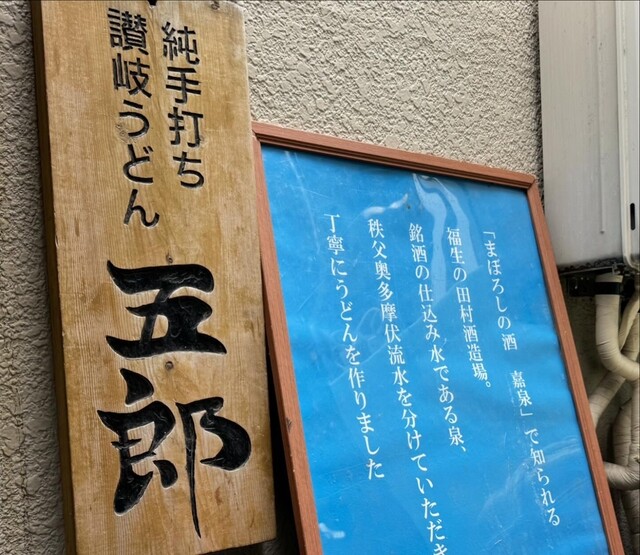 純手打ち
讃岐うどん
五郎
「まぼろしの酒　嘉泉」で知られる
福生の田村酒造場。
銘酒の仕込み水である泉、
秩父奥多摩伏流水を分けていただき
丁寧にうどんを作りました